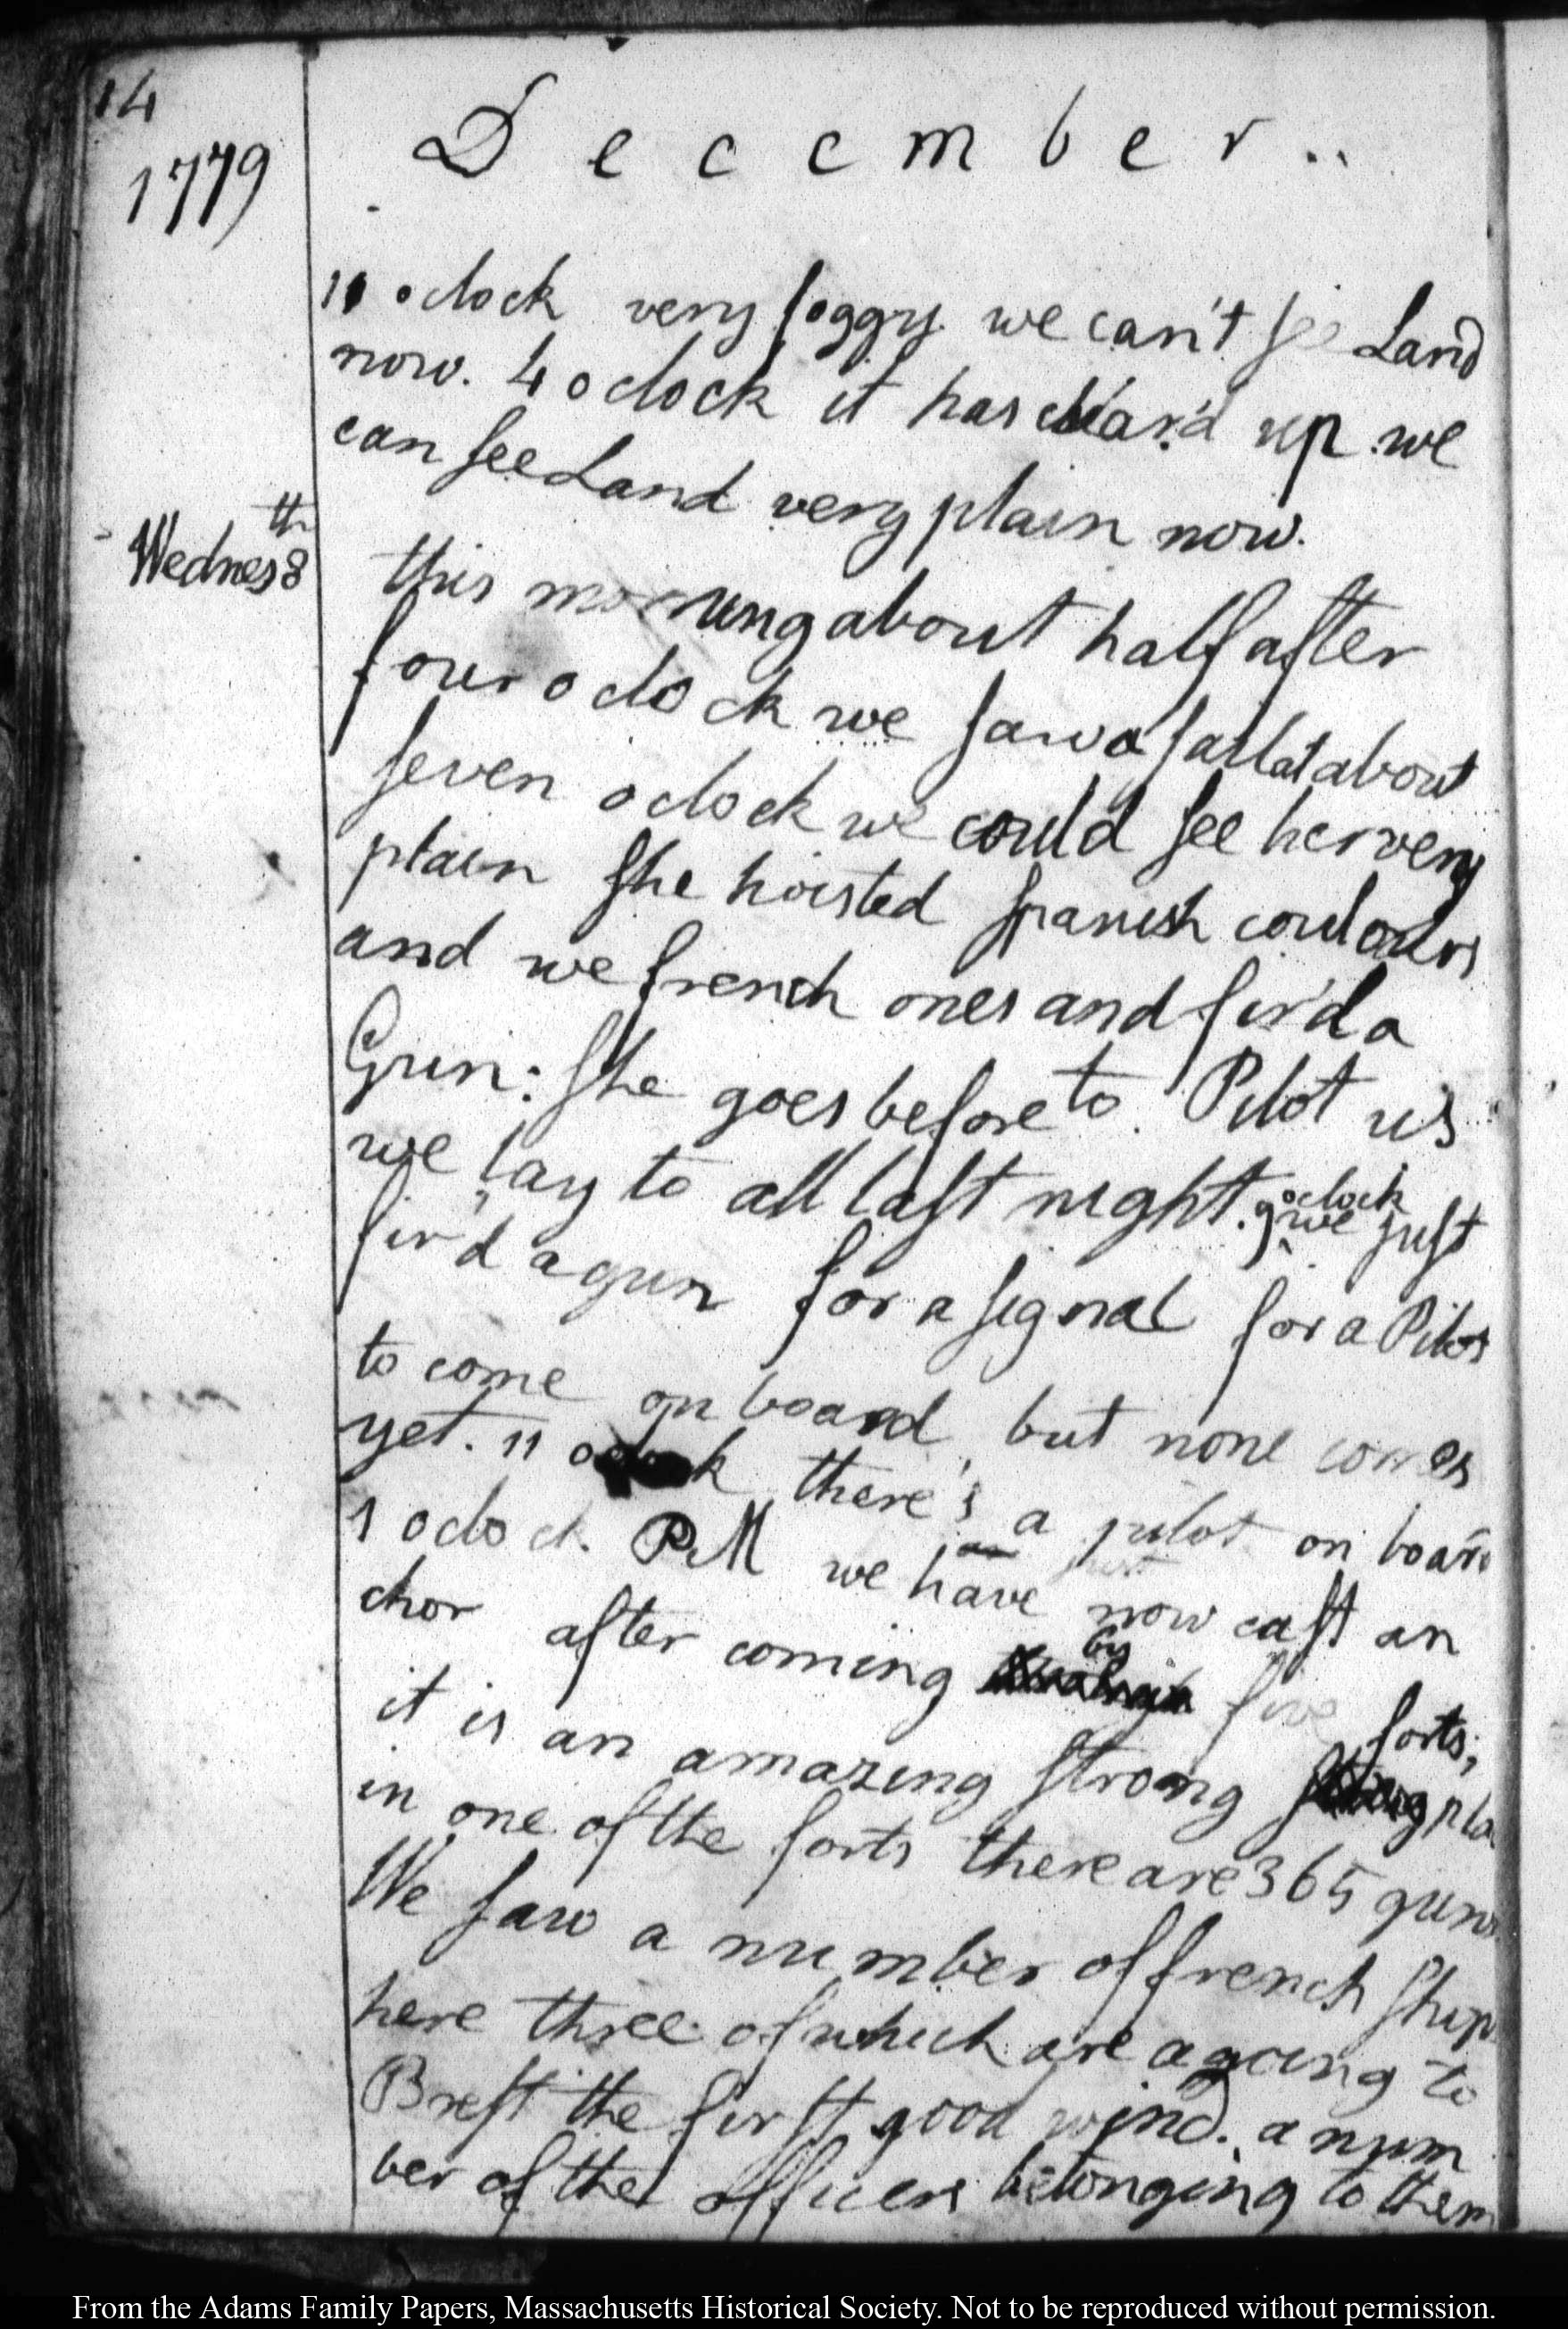 14
1779
December..
11 oclock very foggy we can't see Land
now. 4 oclock it has clear'd up we
can see Land very plain now.
th
Wednes 8
this morning about half after
four oclock we saw a sail at about
seven oclock we could see her very
plain she hoisted spanish coulours
and we french ones and fir'd a
Gun: she goes before to Pilot us
we lay to all last night. 9 oclock we just
fir'd a gun for a signal for a Pilot
to come on board but none comes
yet. 11 oclock there's a pilot on board
1 oclock. PM we have now cast an
chor after coming by five forts;
it is an amazing strong pla
in one of the forts there are 365 guns
We saw a number of french ships
here three of which are agoing to
Brest the first good wind. a num
ber of the officers belonging to them
From the Adams Family Papers, Massachusetts Historical Society. Not to be reproduced without permission.